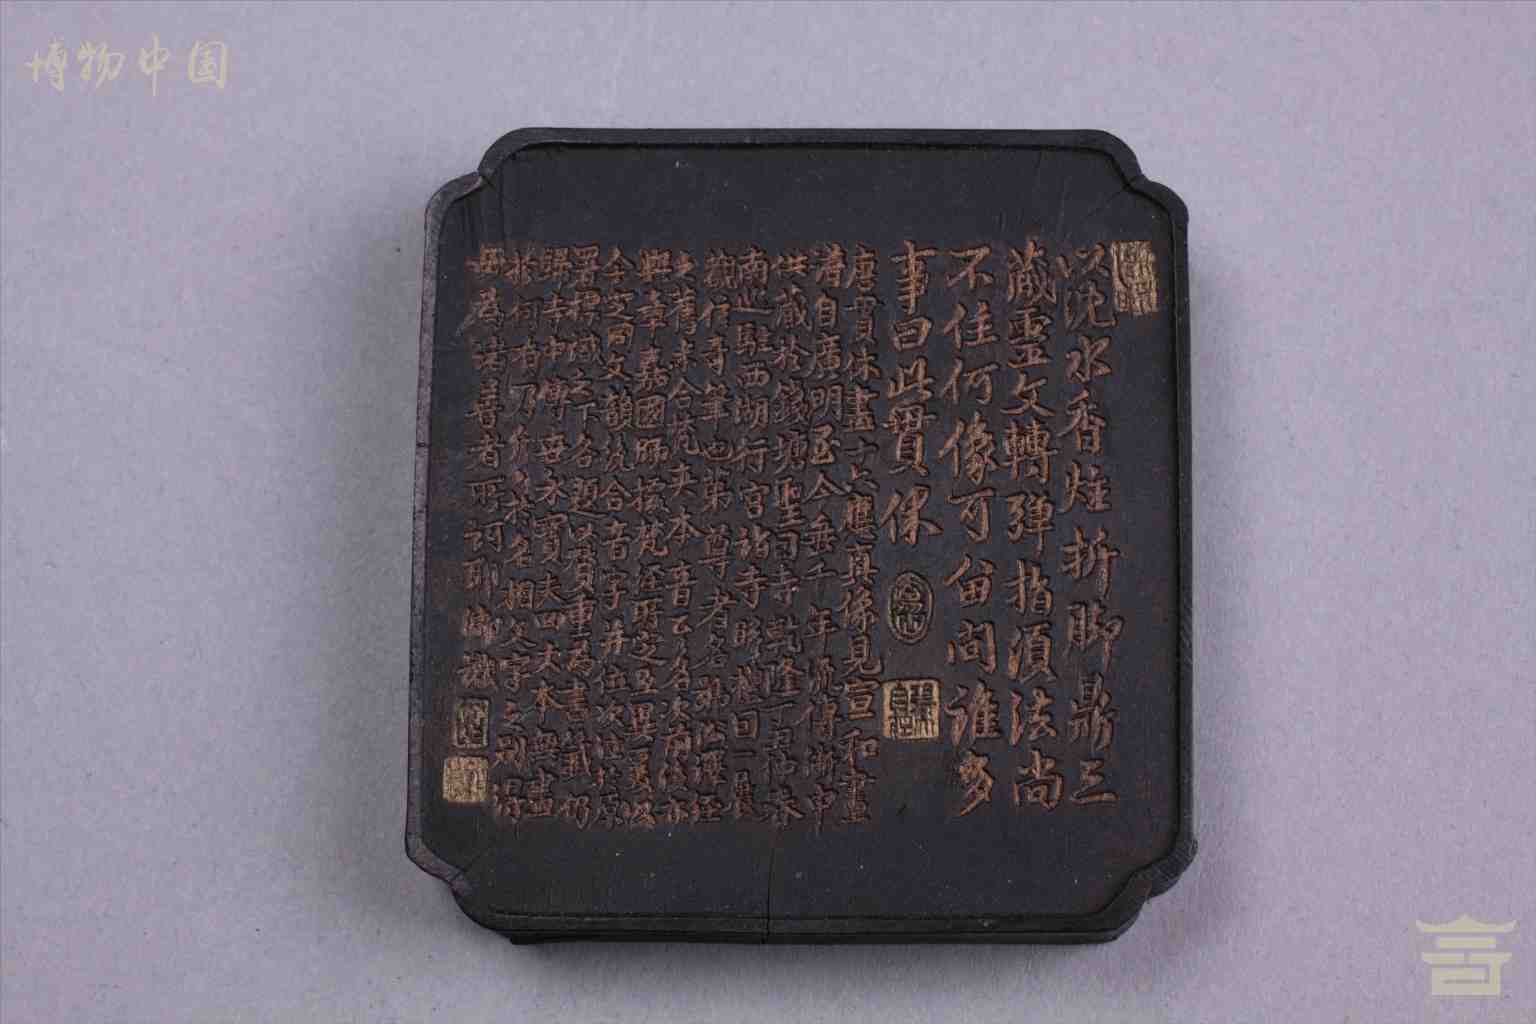 博物中国
以沈水香炷折脚鼎三
藏靈文轉彈指須法尚
不住何像可留問誰多
事曰此貫休
唐貫休畫十六應真像見宣和畫
譜自廣明至今垂千年流傳浙中
供藏於錢塘聖因寺乾隆丁丑仲春
南巡駐西湖行宮詣寺瞻禮因一展
觀信奇筆也第尊者名號沿譯經
之舊未合梵夾本音其名次前後亦
與章嘉國師據梵經所定互異爰以
今定同文韻統合音字並位次注於原
署標識之下各題以贊重為書籤仍
歸寺中傳世永寶夫四大本無畫
於何有乃於名相文字之別得
毋為諸善者所訶耶御識